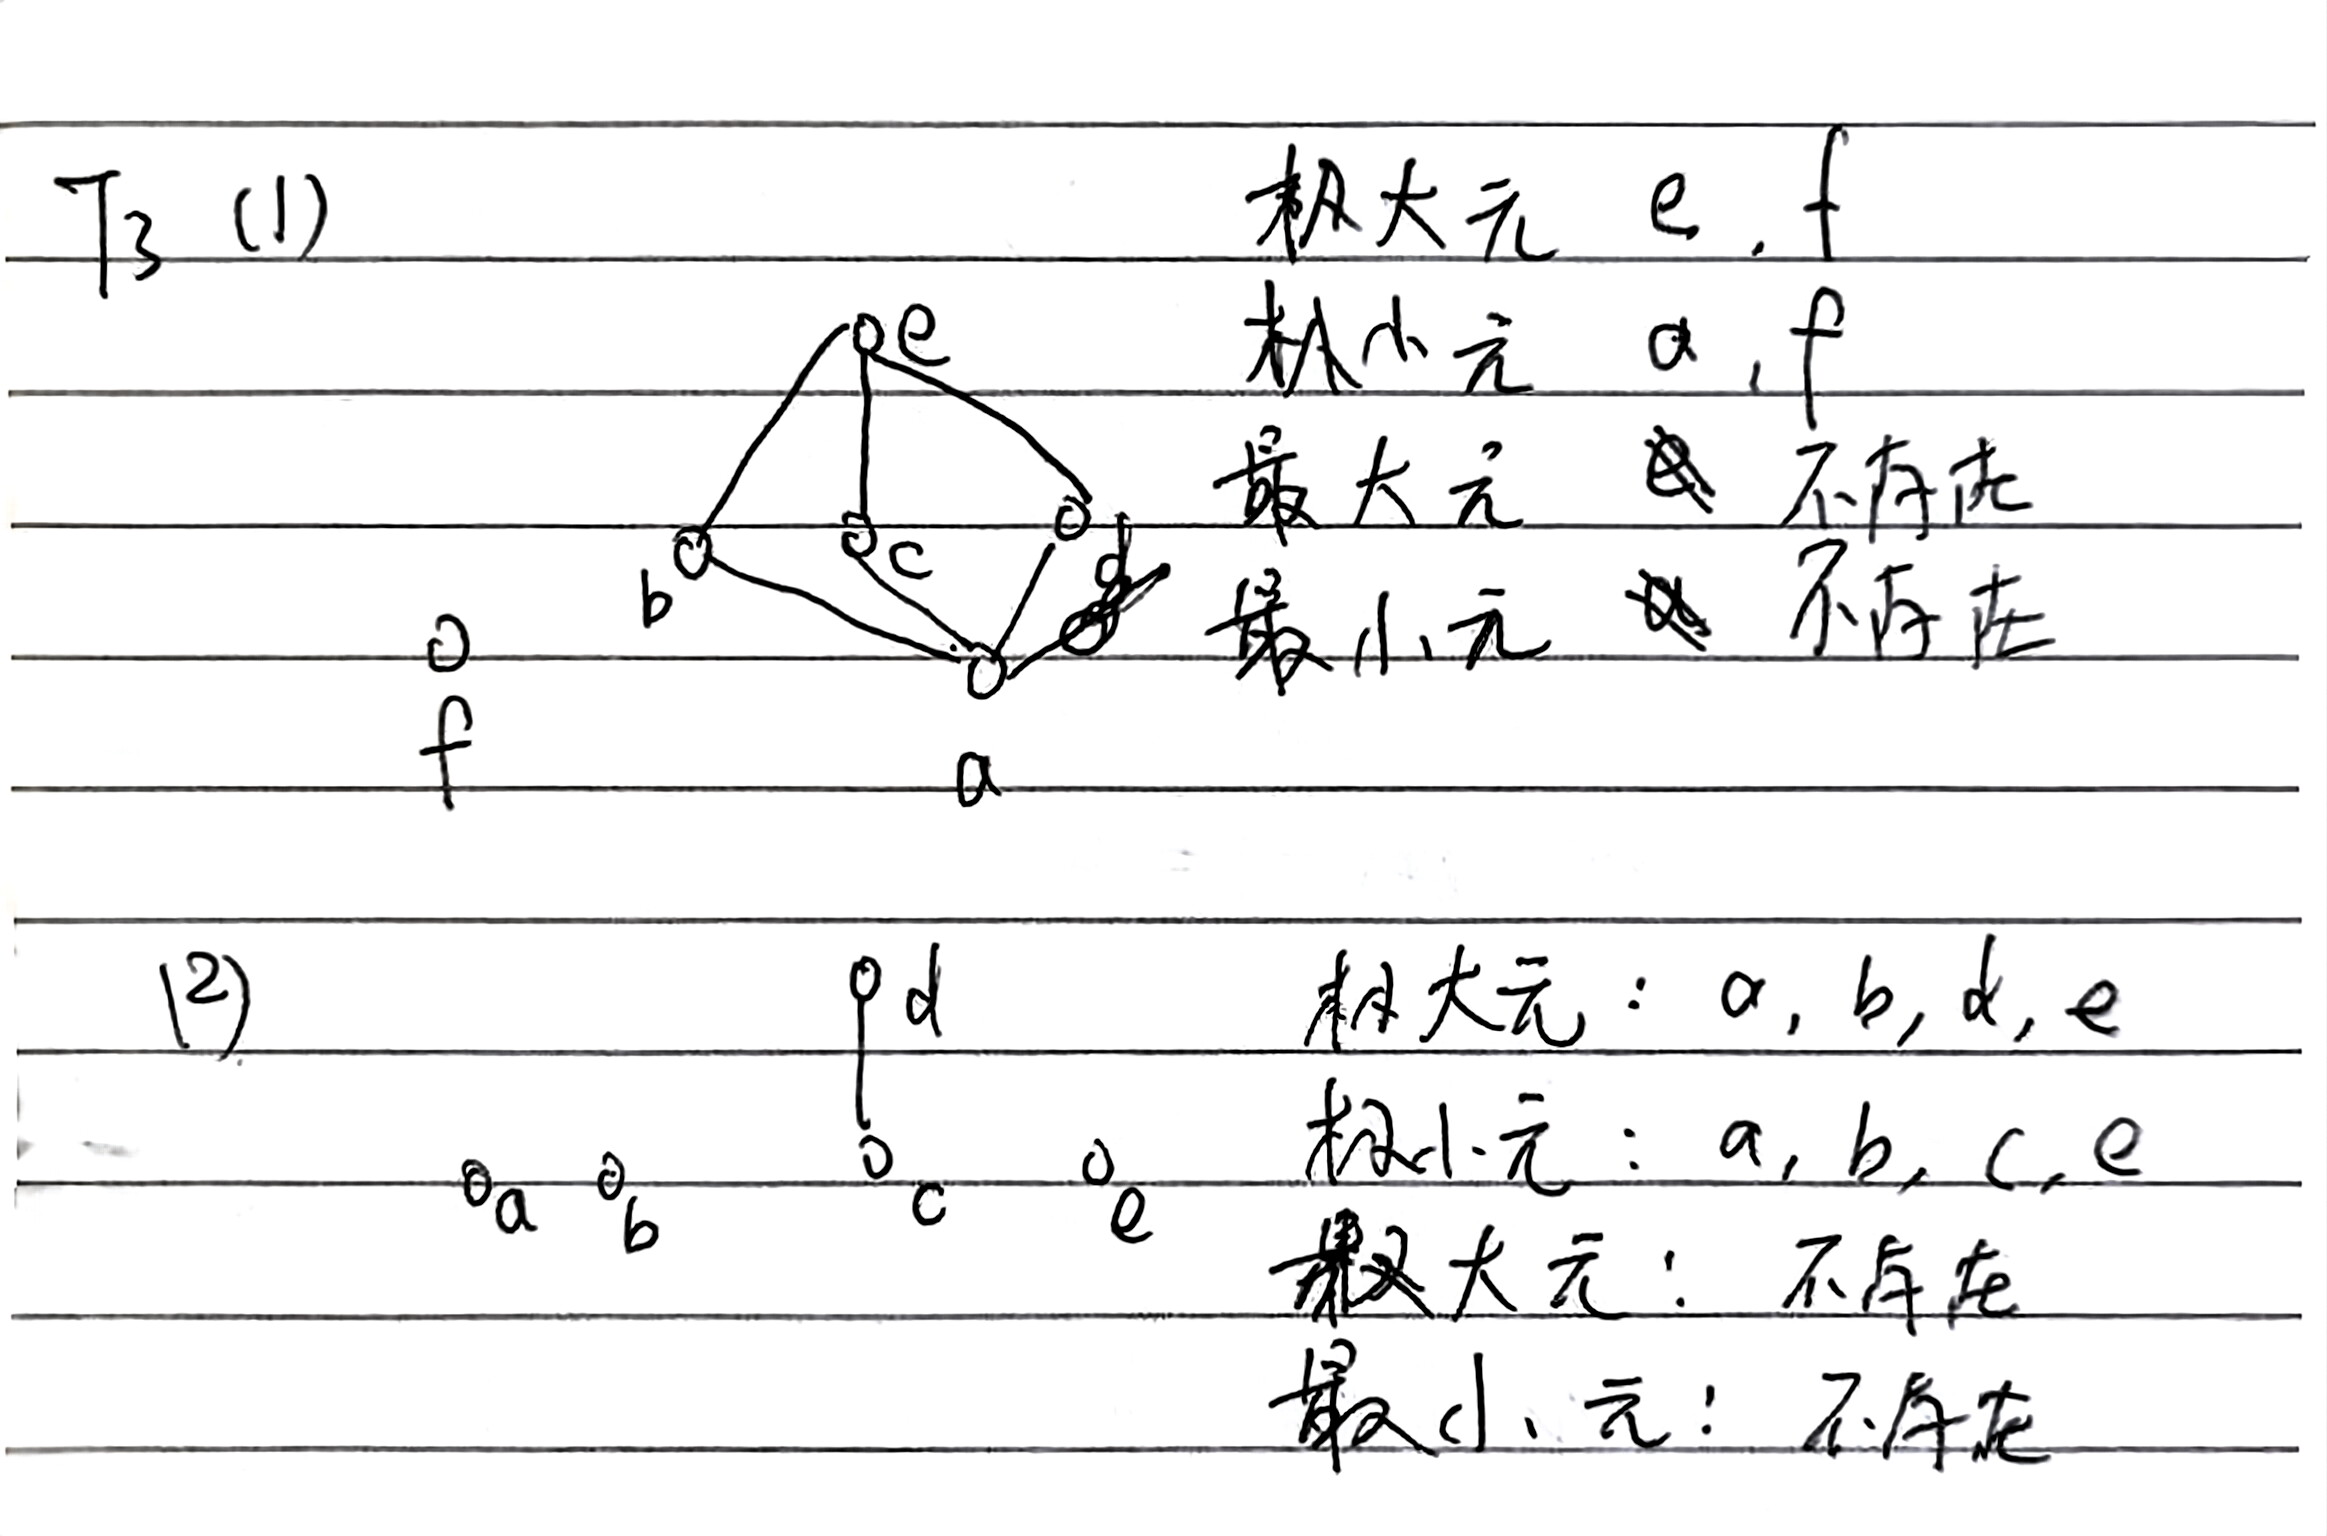 T3 (1)
极大元 e, f
e
极小元 a, f
最大元 不存在
b c d
最小元 不存在
f
a
(2)
d
极大元: a, b, d, e
极小元: a, b, c, e
a b c e
最大元: 不存在
最小元: 不存在